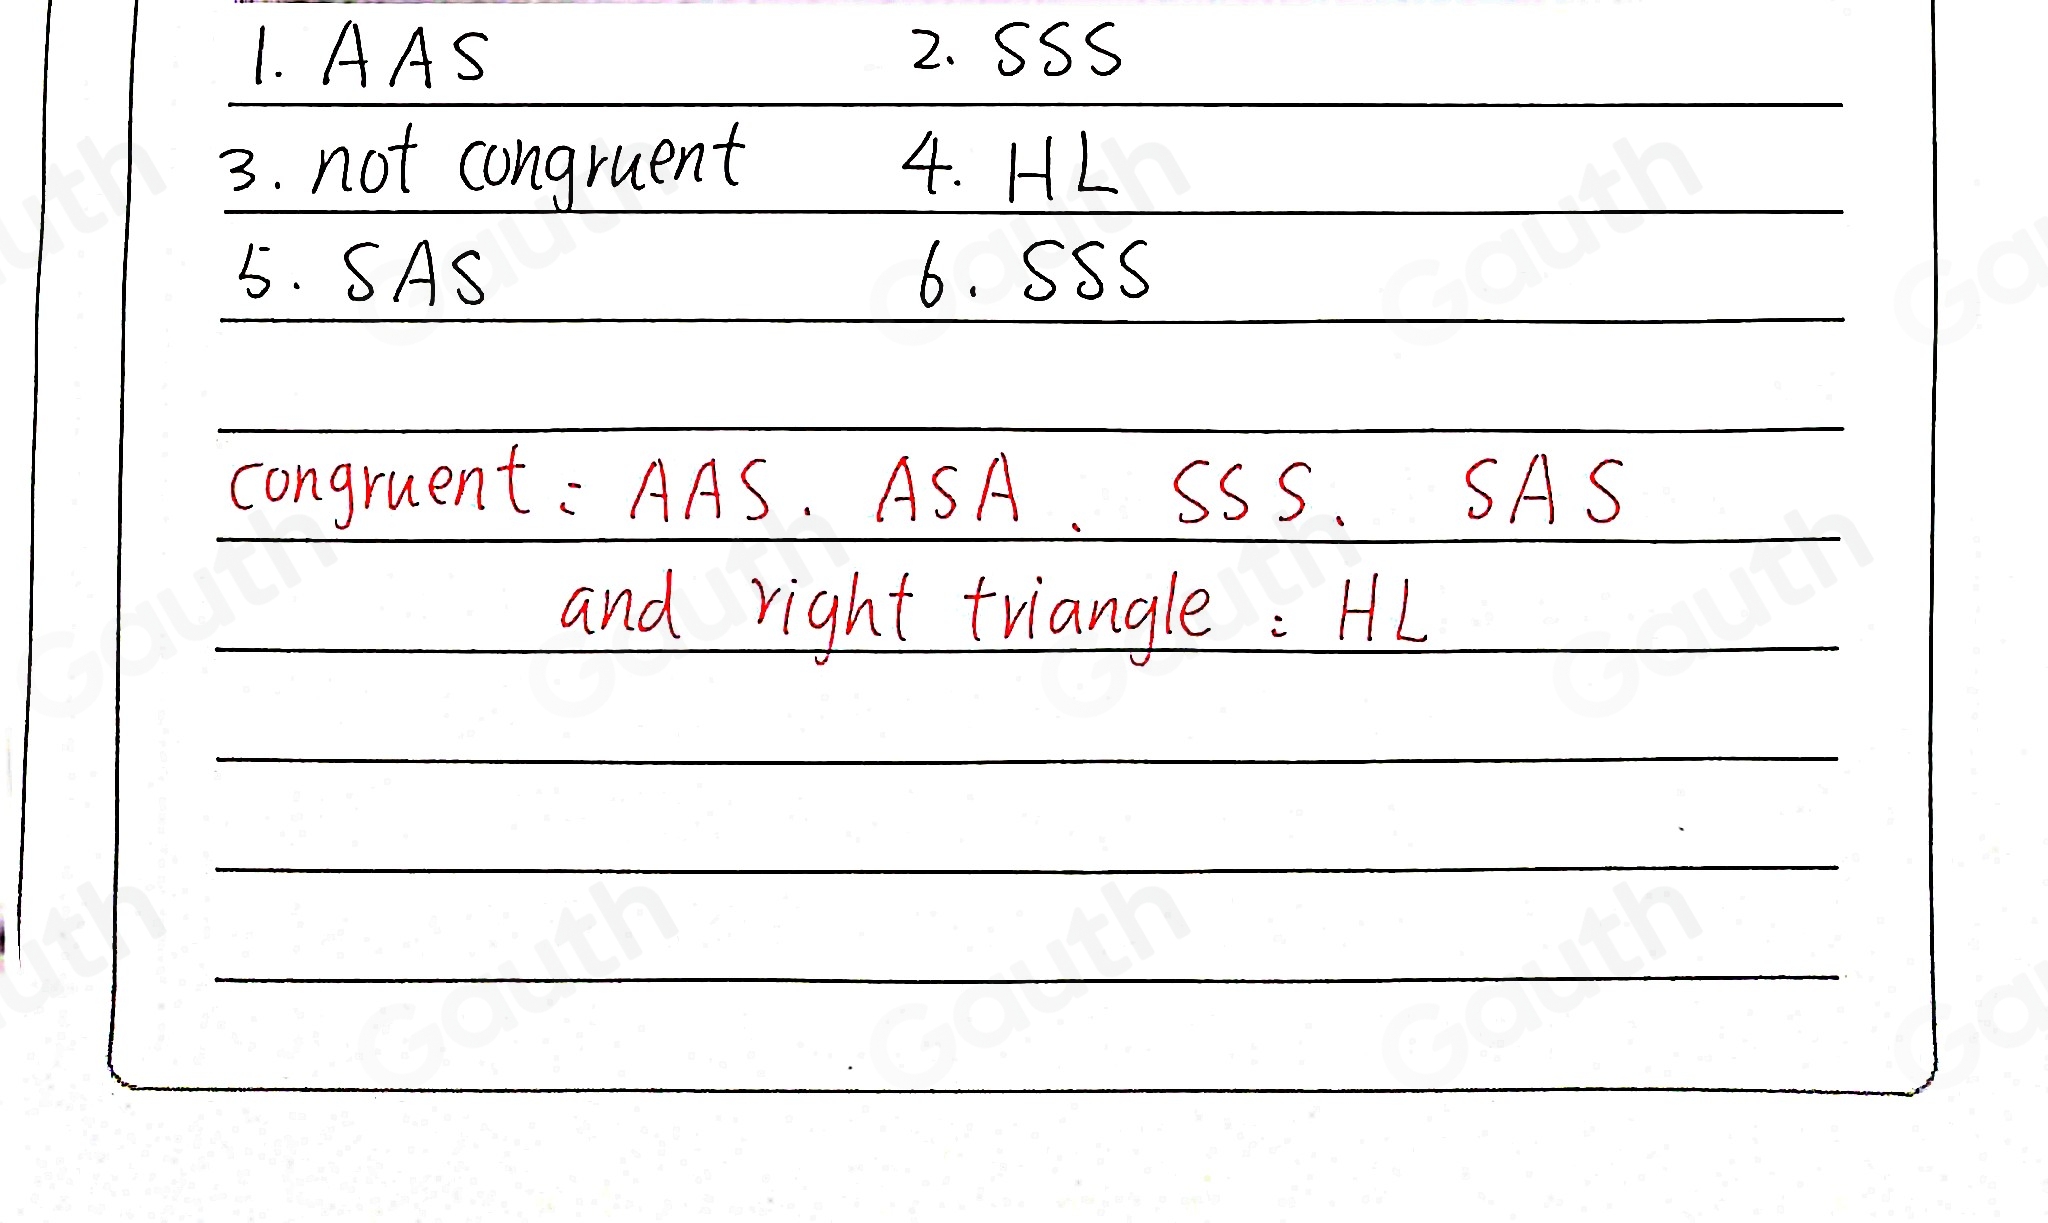 1. AAS 2. SSS
3. not congruent 4. HL
5. SAS 6. SSS
congruent: AAS. ASA. SSS. SAS
and right triangle: HL